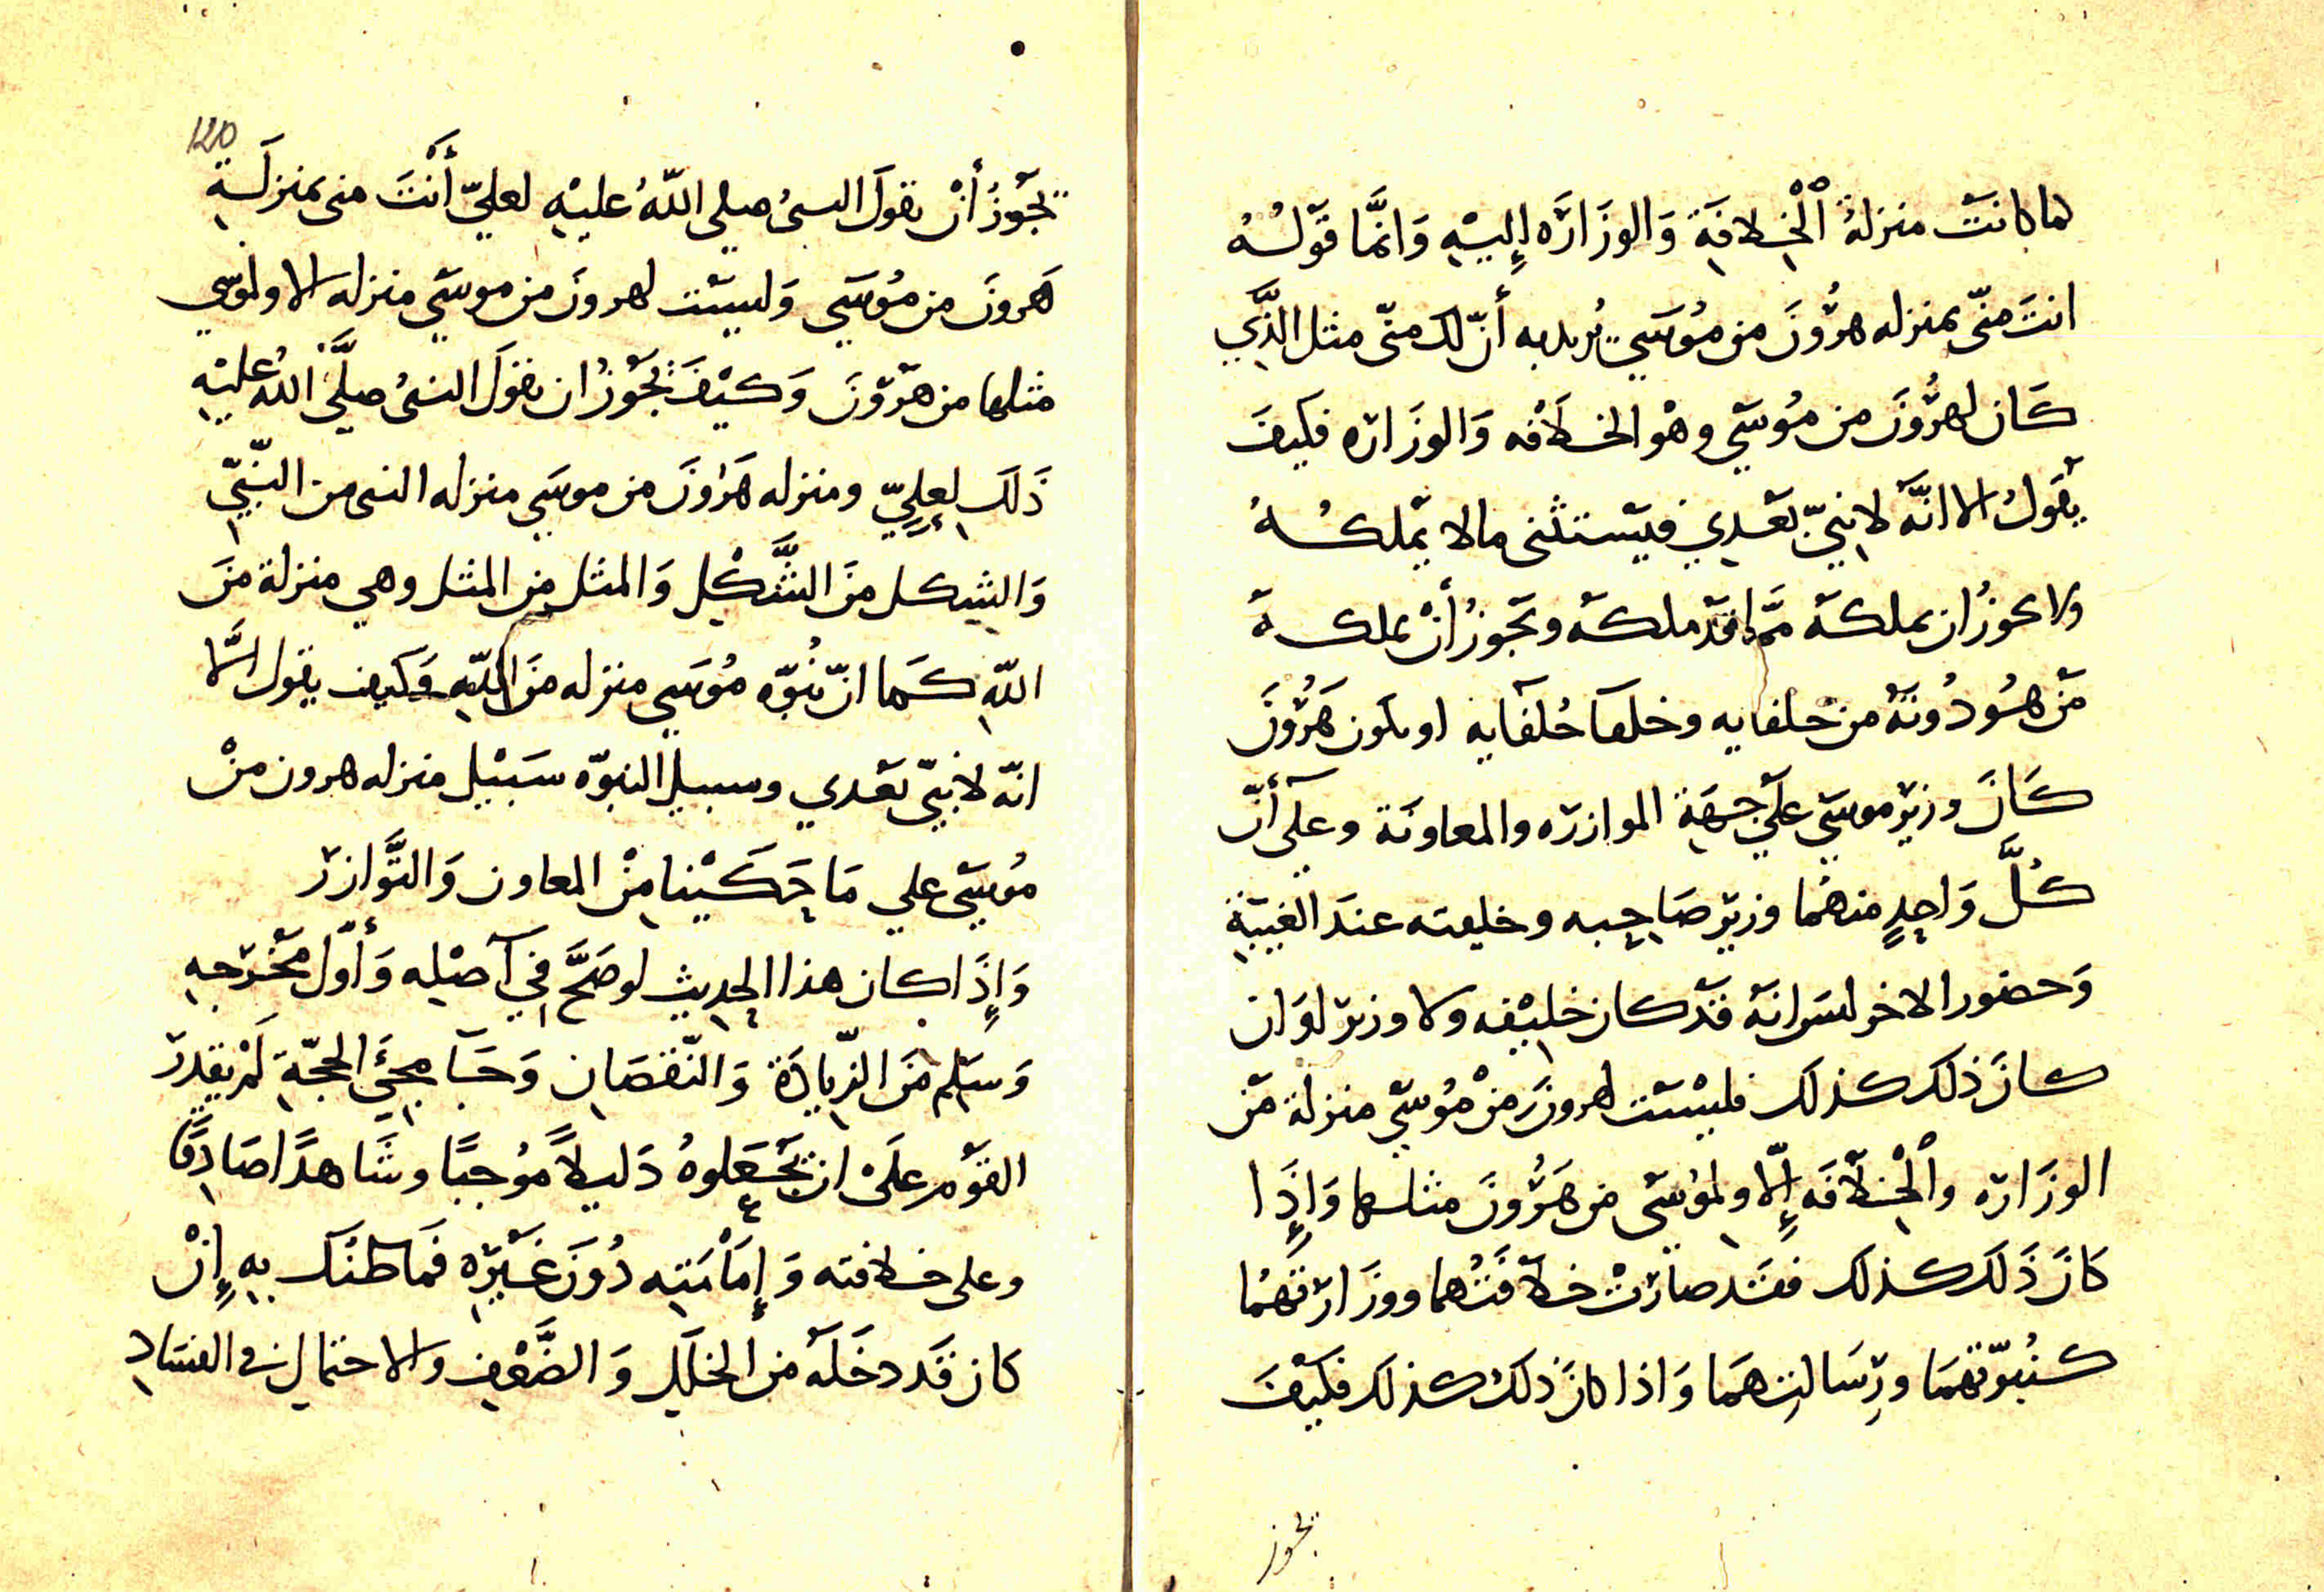 لما كانت منزلة الْخِلافَة وَالوزَارَه إِليْهِ وَانَّما قَوْلُهُ
انتَ منّى بمنزله هرُونَ من مُوسَي يُريد به أنّ لك منّى مثل الذَّي
كَان لهرُونَ من مُوسَي وهْو الخلَافه وَالوزَاره فكيفَ
يقَولُ الا انَّه لا نبيّ بَعْدِي فيَستثنى مالا يَملكُهُ
ولا يجوزُ ان يملكَه ممَّا قدْ ملكَه ويَجوزُ أنْ يملكهَ
مَنْ هُو دُونَهُ من خلفايه وخلفا خُلفَايه او يكون هَرُونَ
كَانَ وزيرَ موسَي علَي جهَةِ الموازره والمعاونَة وعلَى أنّ
كُلَّ وَاحِدٍ منهُما وزيرَ صَاحِبه وخليفته عندَ الغيبَةِ
وَحضور الاخر لسَوا نَهُ قدْ كان خليْفه ولا وزير لوَ ان
كانَ ذلك كذلك فليْسَت لهرونَ مِنْ مُوسَي منزلة مَن
الوزَاره والْخِلَافَه إِلّا ولموُسَى من هَرُونَ مثلها وَإِذَا
كانَ ذَلَك كذلك فقَد صارَتْ خلافَتهُما ووزَارتهُما
كنُبوّتهمَا ورِسَالتهمَا وَاذا كانَ ذلكَ كذلك فكيْفَ
يجوز
120
يَجُوزُ أنْ يقولَ النبىُ صلى اللّهُ عليْهِ لعليّ أَنْتَ منى بمنزلَةِ
هَرونَ من مُوسَي وَليسَت لهرونَ من موسَي منزله الا ولموسي
مثلها من هَرَوْنَ وَكيْفَ يَجُوْزُ ان يقولَ النبىُ صلَّى اللهُ عليْهِ
ذَلكَ لِعلِيّ ومنزله هَرُونَ من موسَي منزله النبى من النَّبيّ
وَالشِكل منَ الشَّكْلِ وَالمثل مِن المثل وهي منزلة منَ
اللّهِ كَما انّ نُبوّه مُوسَي منزله منَ اللّهِ وَكيف يقول الّا
انّه لانبيّ بَعْدي وسبيل النبوّه سَبيْل منزله هرون منْ
مُوسَي علي مَا حَكَيْنا مِنْ المعاون وَالتَّوازر
وَإِذَا كان هذا الحِديث لو صَحَّ فِي آصْلِه وَأوّل مَخْرَجِهِ
وَسَلِم مَنَ الزِّيادَة وَالنّقصَان وَحَبا مجئَ الحجّةِ لَمْ يقدِرْ
القَوْم علَىْ ان يَجْعَلوهُ دَليلاً مُوجبًا وشَاهدًا صَادِقًا
وعلى خلافته وَإِمَامَتِه دُونَ غَيْرِه فَماظنُك بهِ إِنْ
كان قَد دخَلَه من الخلَلِ وَالضَّعْفِ والاحتمال في الفسَادِ